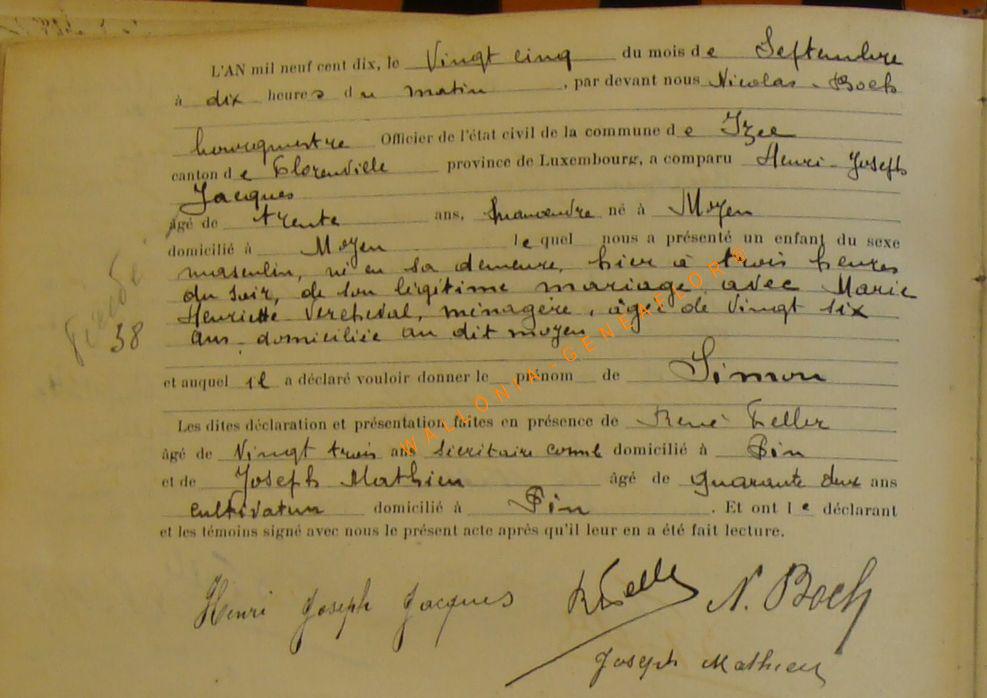 L'AN mil neuf cent dix, le Vingt cinq du mois de Septembre
à dix heures du matin, par devant nous Nicolas Boch
bourgmestre Officier de l'état civil de la commune de Izel
canton de Florenville province de Luxembourg, a comparu Henri-Joseph
Jacques
âgé de trente ans, né à Moyen
domicilié à Moyen lequel nous a présenté un enfant du sexe
masculin, né en sa demeure, hier à trois heures
du soir, de son légitime mariage avec Marie
Henriette Vercheval, ménagère, âgée de Vingt six
38
ans domiciliée au dit moyen
et auquel il a déclaré vouloir donner le prénom de Simon
Les dites déclaration et présentation faites en présence de René Feller
âgé de Vingt trois ans secrétaire coml domicilié à Pin
et de Joseph Mathieu âgé de quarante deux ans
cultivateur domicilié à Pin. Et ont le déclarant
et les témoins signé avec nous le présent acte après qu'il leur en a été fait lecture.
Henri Joseph Jacques RFeller N. Boch
Joseph Mathieu
WALLONIA-GENEAFLORE